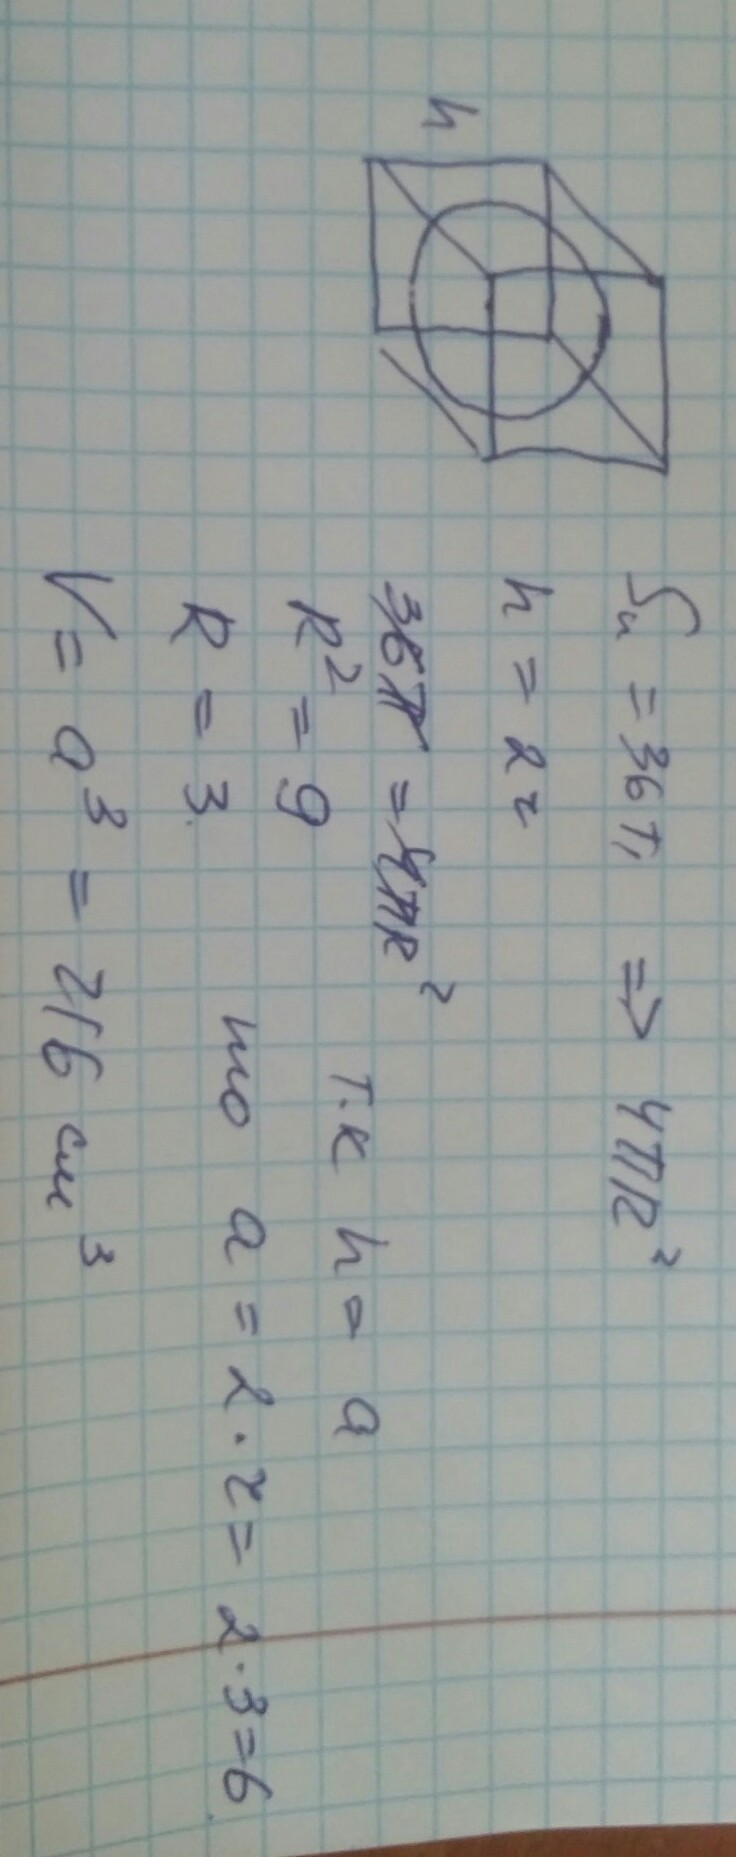 h
Sп = 36π => 4πR²
h = 2r
36π = 4πR²
R² = 9
т.к h = a
R = 3
то a = 2·r = 2·3=6
V = a³ = 216 см³